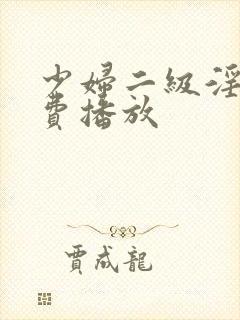 少婦二級淫
費播放
賈成龍